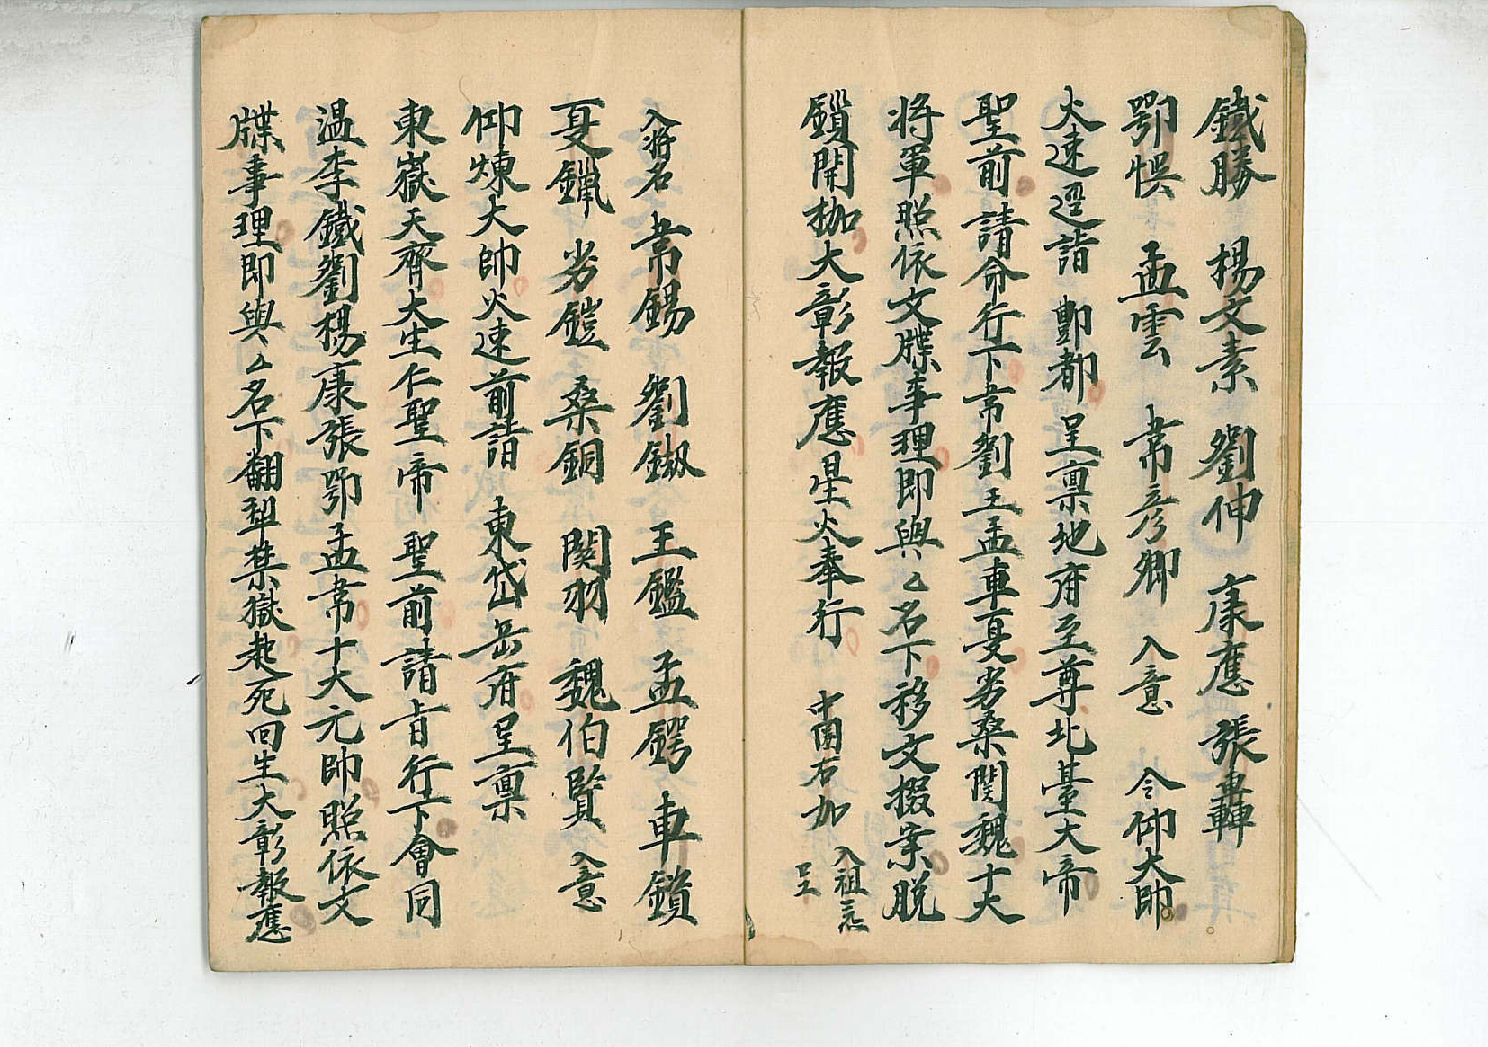 鐵勝　楊文素　劉伸　康應　張轟
鄂悞　孟雲　韋彥卿　入意　令仰大帥
火速逕詣　酆都　呈禀地府至尊北臺大帝
聖前請命行下韋劉王孟車夏劣桑関魏十大
将軍照依文牒事理即與厶名下移文掇案脱
鎖開枷大彰報應星火奉行　中閣右加　入祖呈
入将名　韋錫　劉鏃　王鑑　孟鍔　車鎖
夏鑞　劣鎧　桑銅　関羽　魏伯賢　入意
仰煉大帥火速前詣　東岱岳府呈禀
東嶽天齊大生仁聖帝　聖前請旨行下會同
温李鐵劉楊康張鄂孟韋十大元帥照依文
牒事理即與厶名下翻禁獄起死回生大彰報應